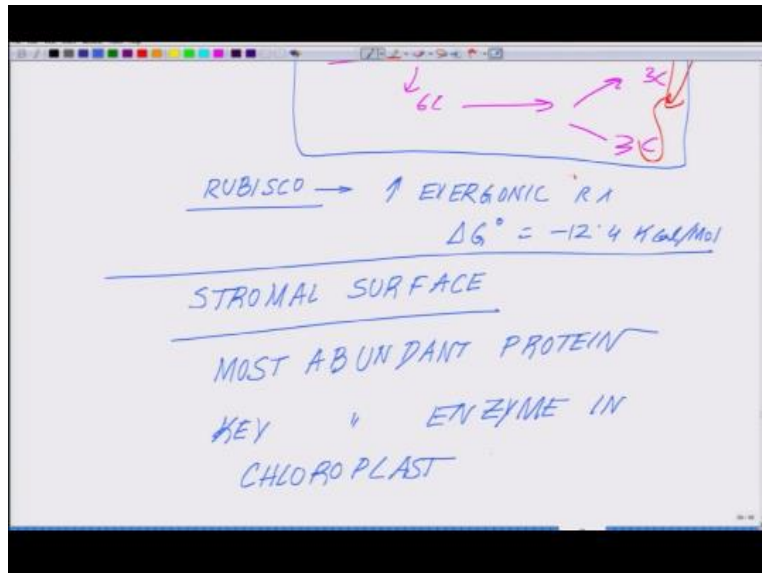 3C
6C
3C
RUBISCO → ↑ EXERGONIC RX
ΔG° = -12.4 KCal/Mol
STROMAL SURFACE
MOST ABUNDANT PROTEIN
KEY " ENZYME IN
CHLOROPLAST